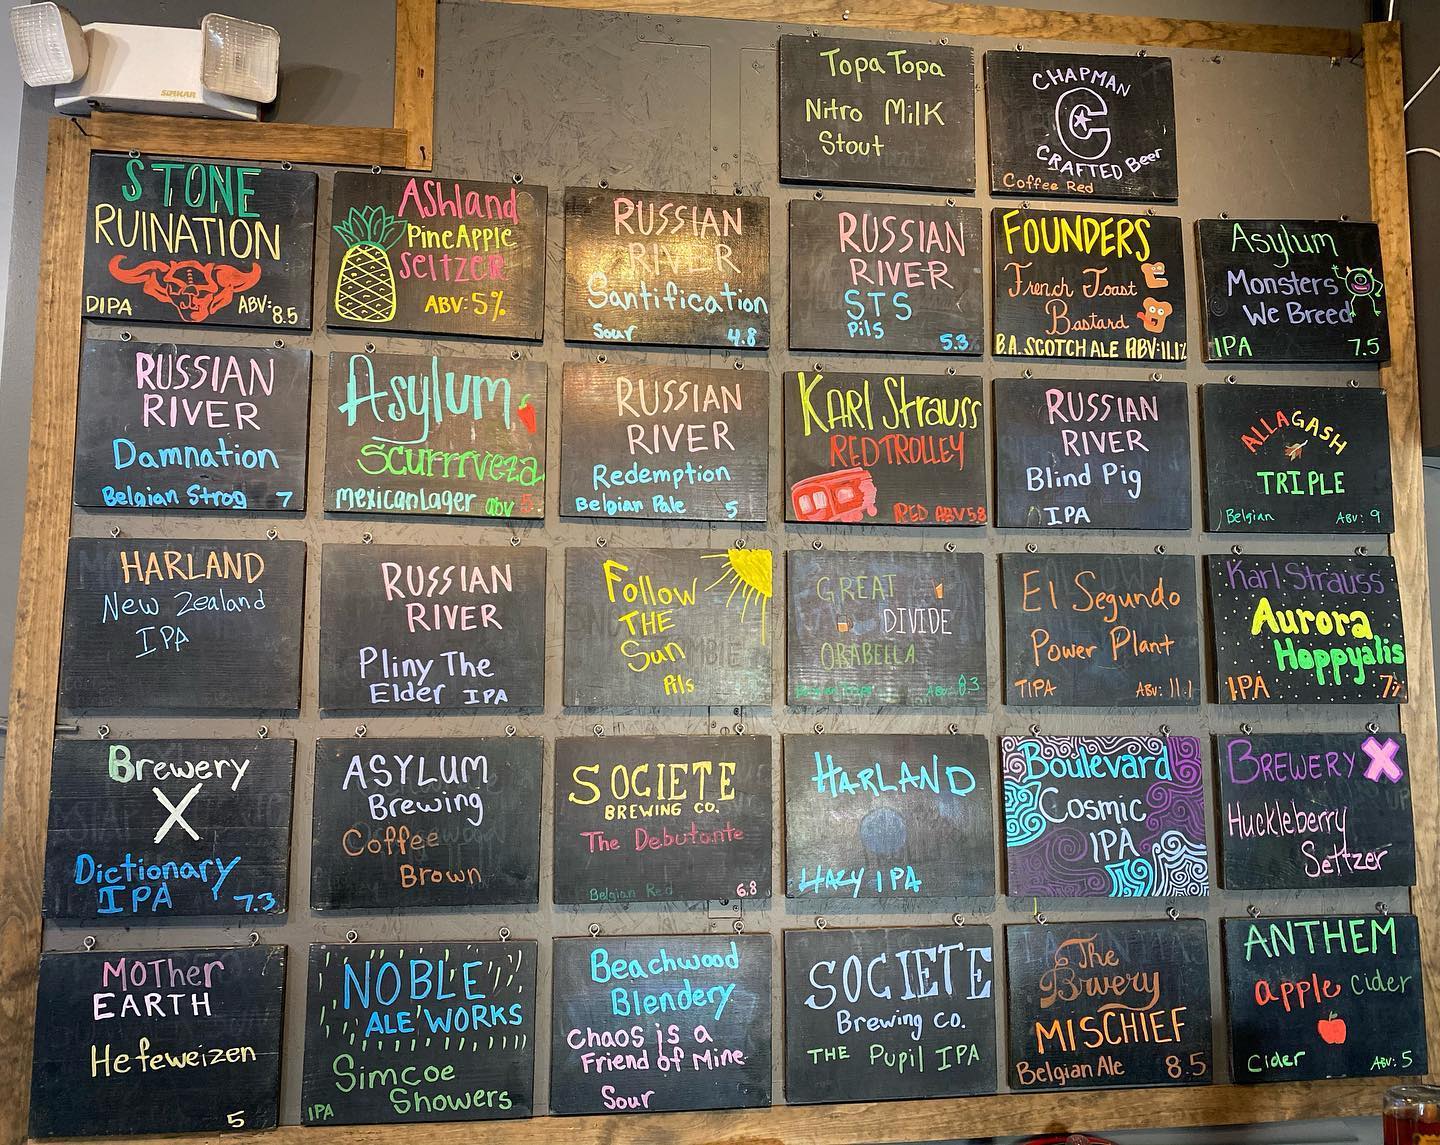 SIMKAR
Topa Topa
Nitro Milk
Stout
CHAPMAN
C
CRAFTED Beer
Coffee Red
STONE
RUINATION
DIPA ABV:8.5
Ashland
PineApple
Seltzer
ABV:5%
RUSSIAN
RIVER
Santification
Sour 4.8
RUSSIAN
RIVER
STS
Pils 5.3
FOUNDERS
French Toast
Bastard
B.A. SCOTCH ALE ABV:11.1%
Asylum
Monsters
We Breed
IPA 7.5
RUSSIAN
RIVER
Damnation
Belgian Strog 7
Asylum
Scurrrveza
mexican Lager abv 5.
RUSSIAN
RIVER
Redemption
Belgian Pale 5
KARl Strauss
RED TROLLEY
RED ABV 5.8
RUSSIAN
RIVER
Blind Pig
IPA
ALLAGASH
TRIPLE
Belgian ABV: 9
HARLAND
New Zealand
IPA
RUSSIAN
RIVER
Pliny The
Elder IPA
Follow
THE
Sun
Pils
GREAT
DIVIDE
ORABELLA
ABV: 8.3
El Segundo
Power Plant
TIPA ABV: 11.1
Karl Strauss
Aurora
Hoppyalis
IPA 7%
Brewery
X
Dictionary
IPA 7.3
ASYLUM
Brewing
Coffee
Brown
SOCIETE
BREWING CO.
The Debutante
Belgian Red 6.8
HARLAND
HAZY IPA
Boulevard
Cosmic
IPA
BREWERY X
Huckleberry
Seltzer
MOTHer
EARTH
Hefeweizen
5
NOBLE
ALE WORKS
Simcoe
IPA Showers
Beachwood
Blendery
Chaos is a
Friend of Mine
Sour
SOCIETE
Brewing Co.
THE Pupil IPA
The
Brwery
MISCHIEF
Belgian Ale 8.5
ANTHEM
apple Cider
Cider ABV: 5